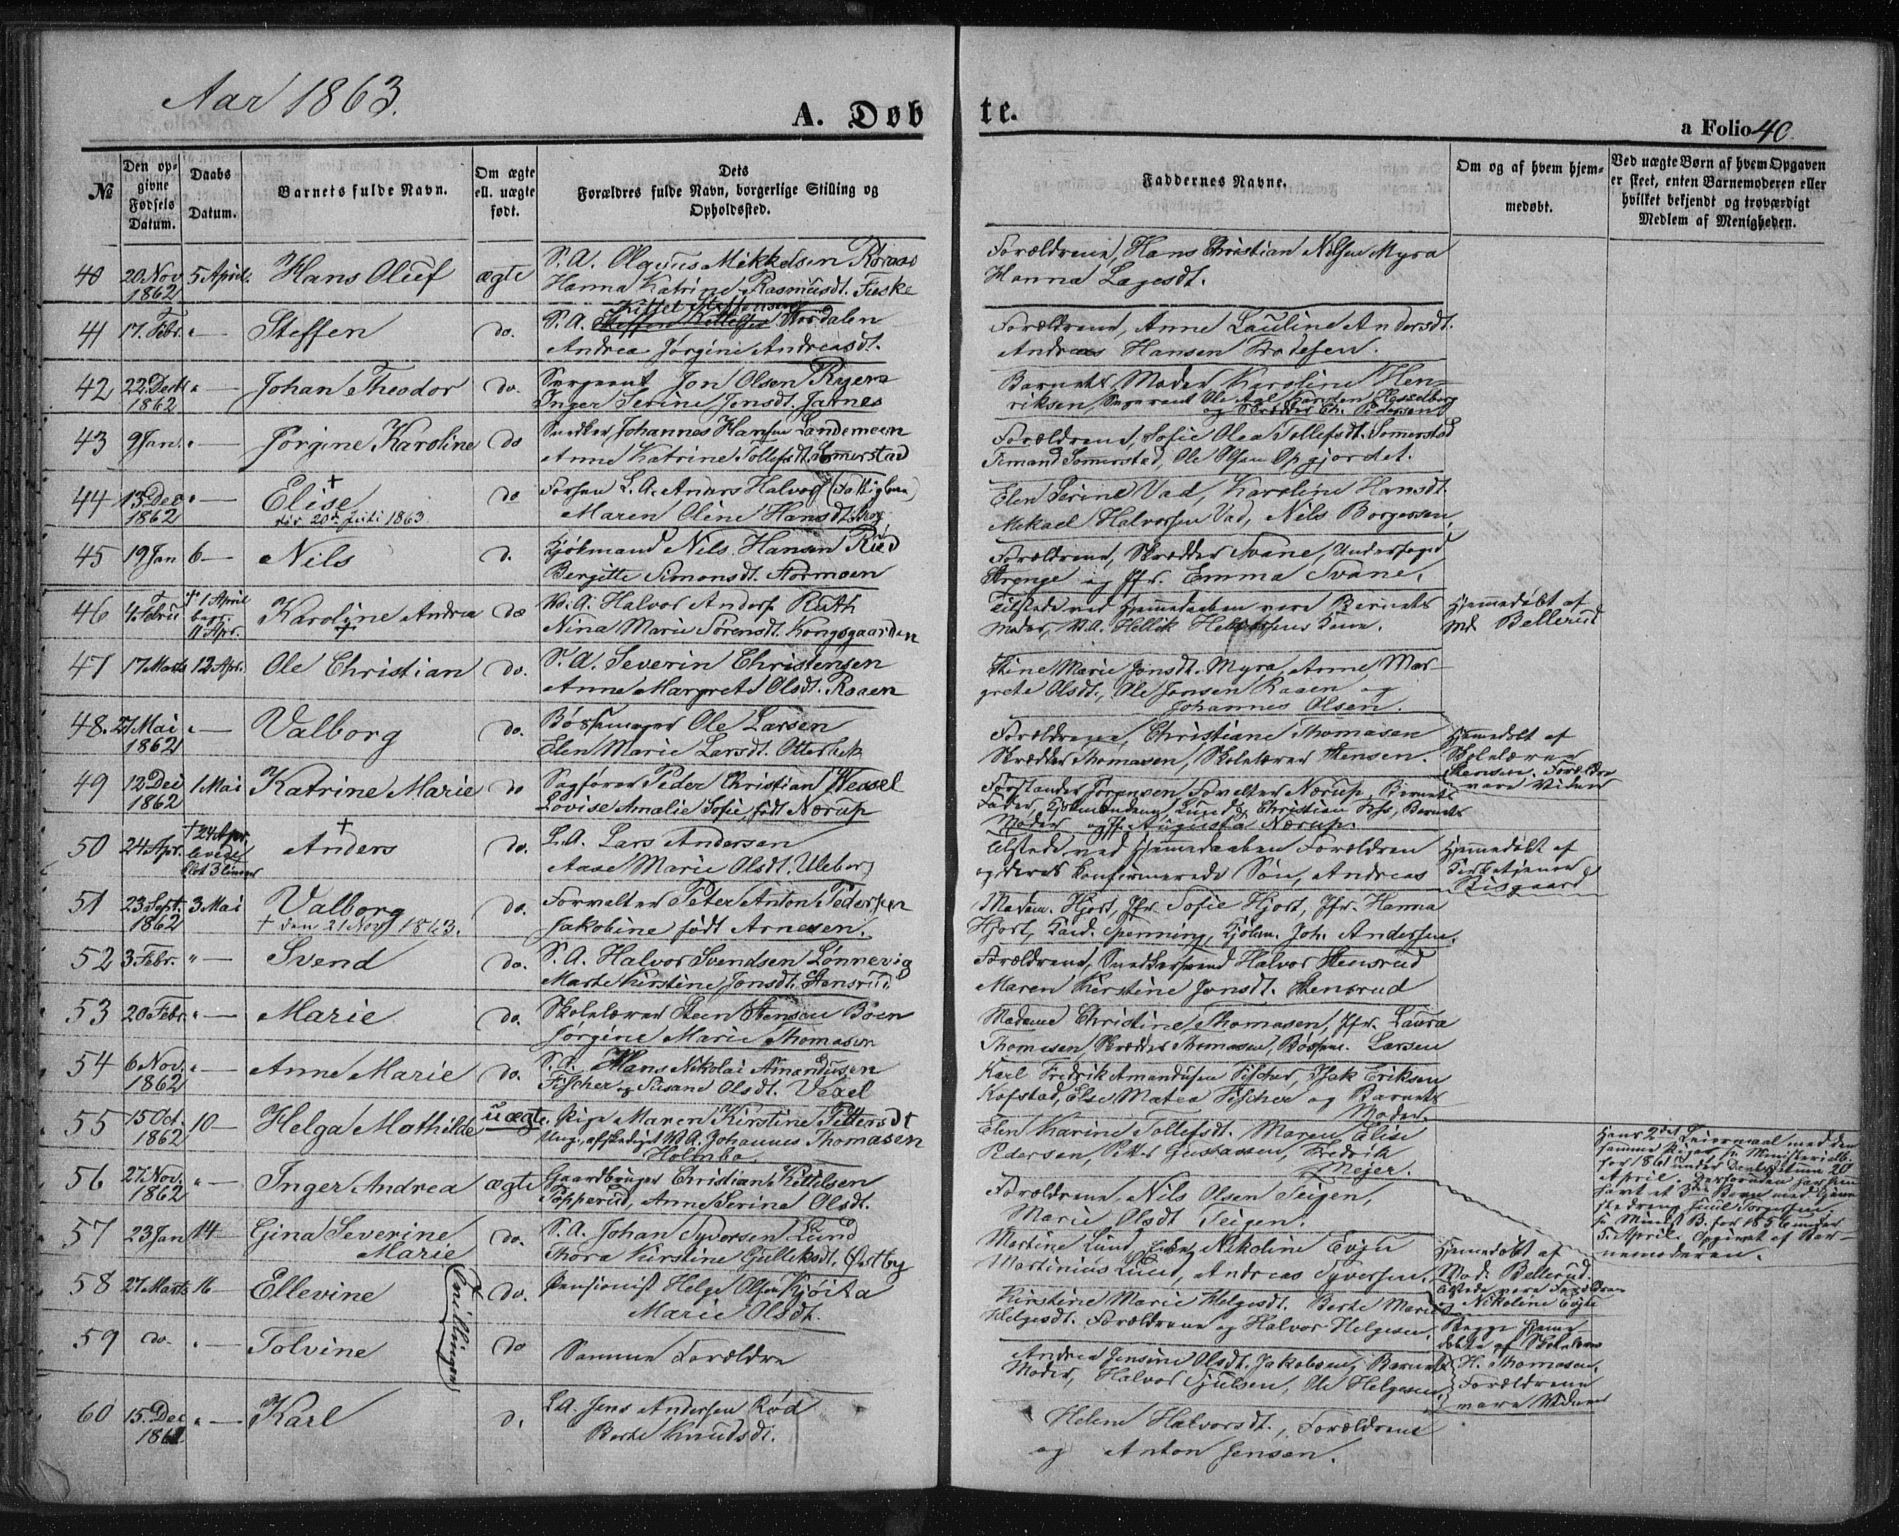 Aar 1863.
A. Døbte.
a Folio 40.
№
Den opgivne Fødsels Datum.
Daabs Datum.
Barnets fulde Navn.
Om ægte ell. uægte født.
Dets Forældres fulde Navn, borgerlige Stilling og Opholdssted.
Faddernes Navne.
Om og af hvem hjemmedøbt.
Ved uægte Børn af hvem Opgaven er skeet, enten Barnemoderen eller hvilket bekjendt og troværdigt Medlem af Menigheden.
40 20 Nov 1862 5 April. Hans Oluf ægte S. A. Olaus Mikkelsen
Hanna Katrine Rasmusdt. Fiske
Forældrene, Hans Christian Nilsen Myra
Hanna Lagesdt.
41 17. Febr. " Steffen do. S. A. Kittel Steffensen Nordalen
Andrea Jørgine Andreasdt.
Forældrene, Anne Lauline Andersdt.
Andreas Hansen
42 22 Decb 1862 " Johan Theodor do. Sergeant Jon Olsen Ryen
Inger Serine Jonsdt. Jarnes
Barnets Moder, Karoline Hen-
riksen, Sergeant Ole Aal, Karsten Hesselberg
og Skrædder Ch. Pedersen
43 9 Jan. " Jørgine Karoline do Snedker Johannes Hansen Landemoen
Anne Katrine Tollefsdt. Somerstad
Forældrene, Sofie Olea Tollefsdt. Somerstad
Temand Sommerstad, Ole Olsen Opgjordet.
44 13 Dec 1862 " Elise † do L. A. Anders Halvors (Fattiglem)
død 20de Juli 1863
Maren Oline Hansdt.
Elen Serine Vad, Karoline Hansdt.
Mikael Halvorsen Vad, Nils Borgersen
45 19 Jan 6 Nils d. Kjøbmand Nils Hansen Riis
Bergitte Simonsdt. Stormoen
Forældrene, Skrædder Svane, Underfoged
Strenge og Jfr. Emma Svane.
46 4. Febru † 1 April
11 Apr. Karoline Andrea do V. A. Halvor Anders Rath
Nina Marie Sørensdt. Kongsgaarden
Tilstede ved Hjemmedaaben vare Barnets
Moder, V. A. Hellik Helliksens Kone.
Hjemmedøbt af
Md. Bellerud
47 17 Marts 12 Apr. Ole Christian do. S. A. Severin Christensen
Anne Margrete Olsdt. Raaen
Stine Marie Jonsdt. Myra, Anne Mar-
grete Olsdt., Ole Jonsen Raaen og
Johannes Olsen.
48. 27 Mai 1862 " Valborg do. Børsemager Ole Larsen
Elen Marie Larsdt. Otterbek
Forældrene, Christiane Thomasen
Skrædder Thomasen, Skolelærer Stensen.
Hjemmedøbt af
Skolelærer
Stensen. Forældre
vare Vidner
49 12 Dei 1862 1 Mai Katrine Marie do Sagfører Peder Christian Wessel
Lovise Amalie Sofie, født Nærup
Forstander Jørgensen Forvalter Nærup, Barnets
Fader, Kjøbmandene Lund & Christian Foss, Barnets
Moder og Jfr. Augusta Nærup.
50 24 Apr. † 24 Apr. levede blot 3 Timer Anders † do. L. A. Lars Andersen
Aase Marie Olsdt.
Tilstede ved Hjemmedaaben Forældrene
og deres konfirmerede Søn, Andreas
Hjemmedøbt af
Kirketjener
Risgaard
51 23 Sept. 1862 3 Mai Valborg do. Forvalter Peter Anton Pedersen
† den 21 Nov 1863.
Jakobine født Arnesen.
Madam Hjort, Jfr. Sofie Hjort, Jfr. Hanna
Hjort, Kand. Spenning, Kjøbm. Joh. Andersen.
52 3 Febr. " Svend do. S. A. Halvor Svendsen Lønnevig
Marte Kirstine Jonsdt. Stensrud
Forældrene, Snedkersvend Halvor Stensrud
Maren Kirstine Jonsdt. Stensrud
53 20 Febr. " Marie do. Skolelærer Steen Stensen Boen
Jørgine Marie Thomasen
Madame Christine Thomasen, Jfr. Laura
Thomasen, Skrædder Thomasen, Børsem. Larsen
54 6 Nov. 1862 " Anne Marie do. S. A. Hans Nikolai Amandusen
Fischer og Susane Olsdt. Vexel
Karl Fredrik Amandusen Fischer, Isak Eriksen
Kofstad, Else Matea Fischer og Barnets
Moder.
55 15 Oct. 1862 10 Helga Mathilde uægte. Pige Maren Kirstine Pettersdt
Ung., afskediget V. A. Johannes Thomasen
Holmbo
Elen Karine Tollefsdt. Maren Elise
Pedersen, Petter Gustassen, Fredrik
Mejer.
Hans 2det Leiermaal med den
samme Pige, se Ministerialb.
for 1861 under Daabsdatum 20
April.
havt et Barn med
Torgersen,
se Minist B. for 1856 under
April. Opgivet af Bar-
nemoderen.
56 27. Nov. 1862 " Inger Andrea ægte Gaardbruger Christian Kittilsen
Topperud, Anne Serine Olsdt.
Forældrene, Nils Olsen Teigen,
Marie Olsdt Teigen.
57 23 Jan 14 Gina Severine
Marie do. S. A. Johan Syversen Lund
Thora Kirstine Gulliksdt. Østby
Martine Lund, Nikoline Evju
Martinius Lund, Andreas Syversen.
Hjemmedøbt af
Mad. Bellerud.
Tilstede vare Forældrene
og Nikoline Evju
58 27 Marts 16 Ellevine do. Pensionist Helge Olsen Kjøita
Marie Olsdt.
Tvillinger
Kirstine Marie Helgesdt. Berte Marie
Helgesdt. Forældrene og Halvor Helgesen.
Begge hjemme-
døbte af Skolelærer
H. Thomasen.
Forældrene
vare Vidner
59 do. " Tolvine do Samme Forældre
Andrea Jensine Olsdt. Jakobsen, Barnets
Moder, Halvor Tjulsen, Ole Helgesen.
60 15. Dec 1862 " Karl d. L. A. Jens Andersen Rød
Berte Knudsdt.
Helene Halvorsdt., Forældrene
og Anton Jensen.